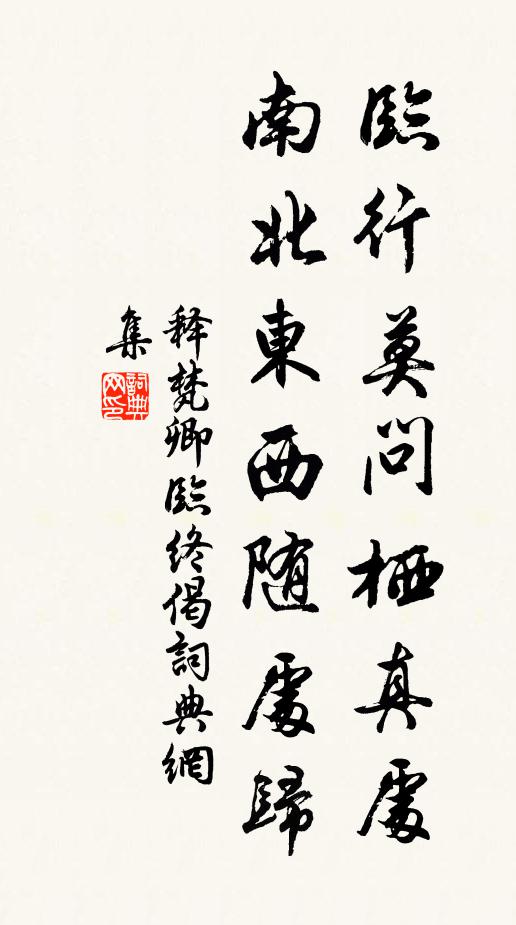 臨行莫問栖真處
南北東西随處歸
释梵卿臨终偈詞典網
集
詞典网印